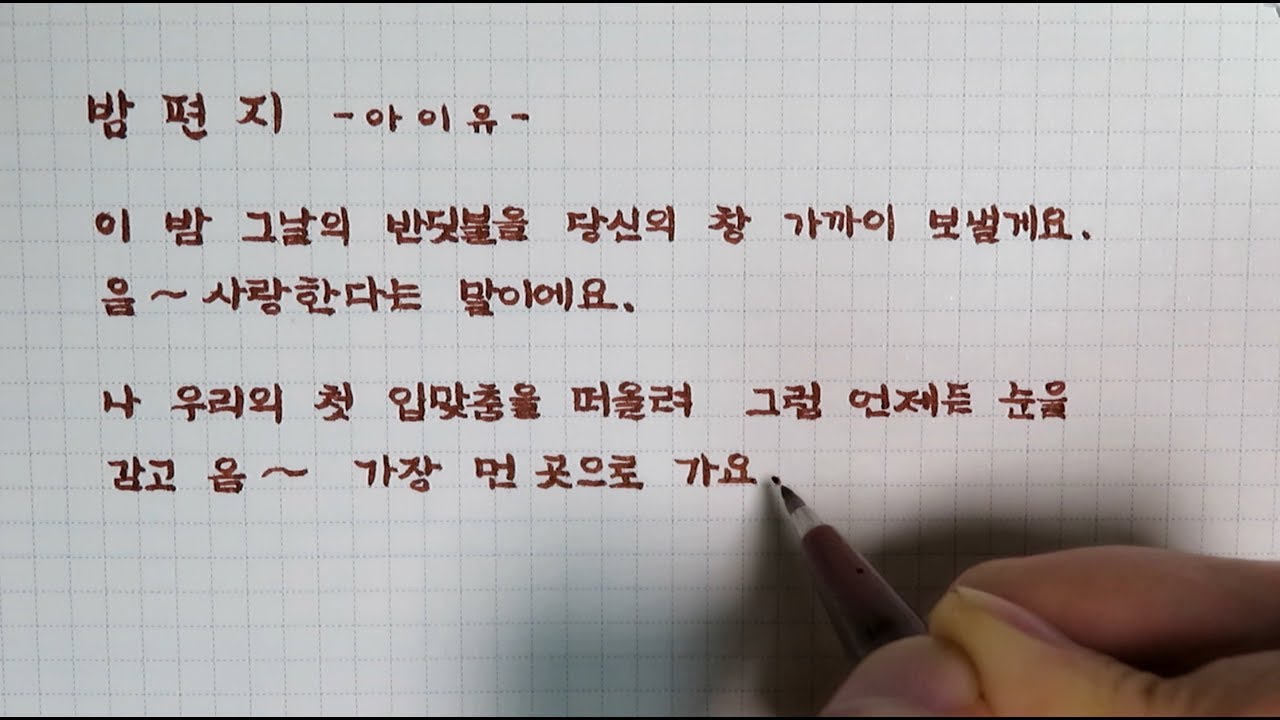 밤 편 지 -아 이 유-
이 밤 그날의 반딧불을 당신의 창 가까이 보낼게요.
음~사랑한다는 말이에요.
나 우리의 첫 입맞춤을 떠올려 그럼 언제든 눈을
감고 음~ 가장 먼 곳으로 가요.